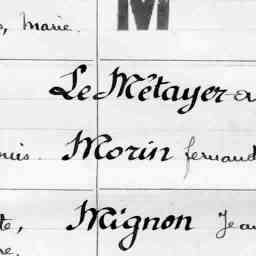 M
, Marie.
Le Métayer
Morin fernand
Mignon Jean